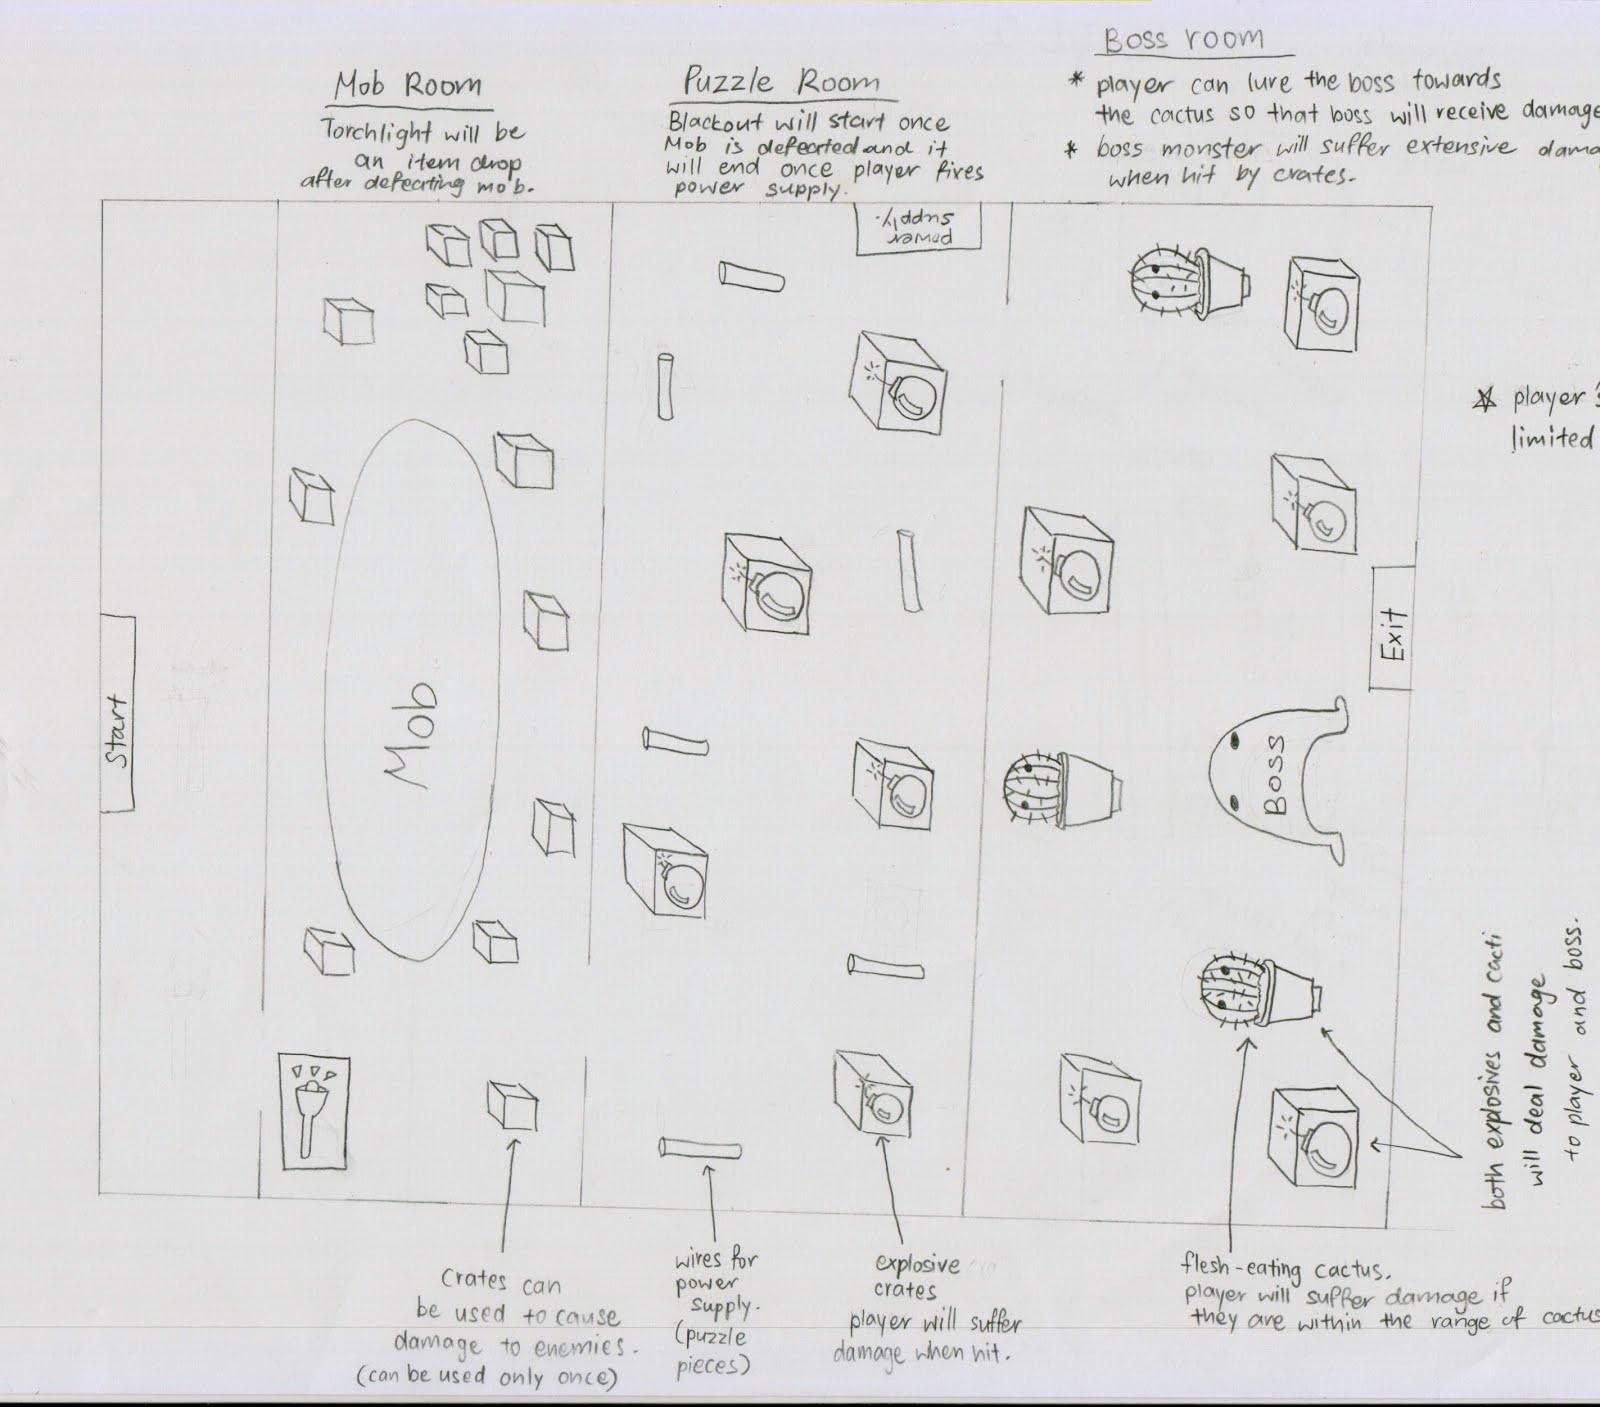 Mob Room
Torchlight will be
an item drop
after defeating mob.
Puzzle Room
Blackout will start once
Mob is defeated and it
will end once player fixes
power supply.
Boss room
* player can lure the boss towards
the cactus so that boss will receive damage
* boss monster will suffer extensive dama
when hit by crates.
power
supply.
* player's
limited
Start
Mob
Exit
Boss
both explosives and cacti
will deal damage
to player and boss.
Crates can
be used to cause
damage to enemies.
(can be used only once)
wires for
power
supply.
(puzzle
pieces)
explosive
crates
player will suffer
damage when hit.
flesh-eating cactus.
player will suffer damage if
they are within the range of cactus